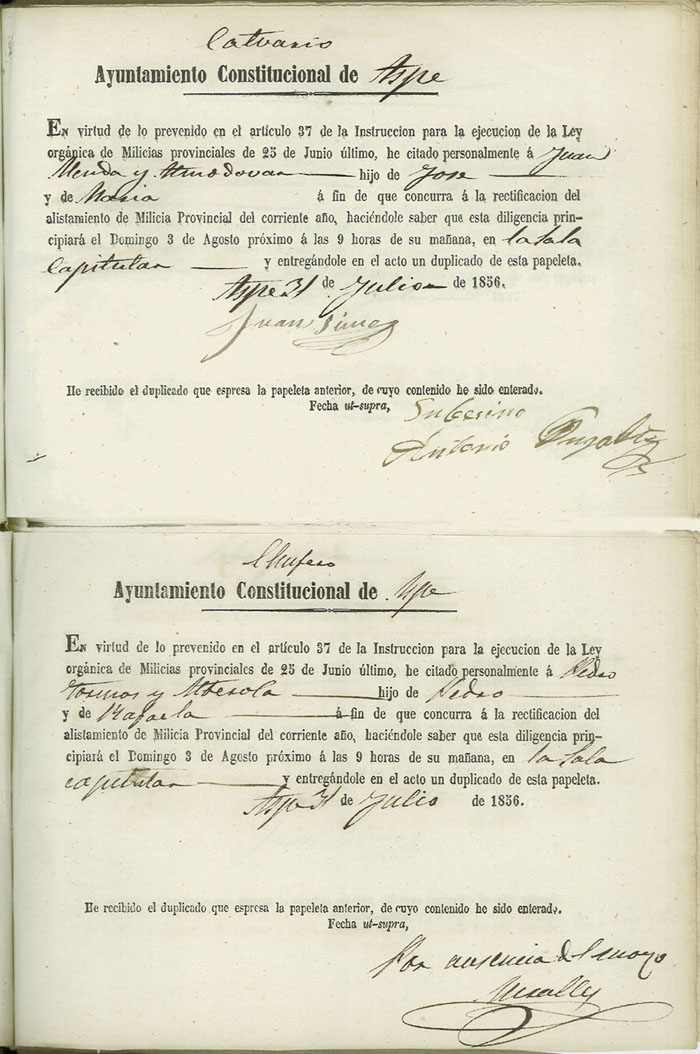 Calvario
Ayuntamiento Constitucional de Aspe
EN virtud de lo prevenido en el artículo 37 de la Instruccion para la ejecucion de la Ley
orgánica de Milicias provinciales de 25 de Junio último, he citado personalmente á Juan
y Almodovar hijo de Jose
y de Maria á fin de que concurra á la rectificacion del
alistamiento de Milicia Provincial del corriente año, haciéndole saber que esta diligencia prin-
cipiará el Domingo 3 de Agosto próximo á las 9 horas de su mañana, en la Sala
Capitular y entregándole en el acto un duplicado de esta papeleta.
Aspe 31 de Julio de 1856.
Juan
He recibido el duplicado que espresa la papeleta anterior, de cuyo contenido he sido enterado.
Fecha ut-supra,
Antonio
Ayuntamiento Constitucional de Aspe
EN virtud de lo prevenido en el artículo 37 de la Instruccion para la ejecucion de la Ley
orgánica de Milicias provinciales de 25 de Junio último, he citado personalmente á Pedro
y hijo de Pedro
y de Rafaela á fin de que concurra á la rectificacion del
alistamiento de Milicia Provincial del corriente año, haciéndole saber que esta diligencia prin-
cipiará el Domingo 3 de Agosto próximo á las 9 horas de su mañana, en la Sala
capitular y entregándole en el acto un duplicado de esta papeleta.
Aspe 31 de Julio de 1856.
He recibido el duplicado que espresa la papeleta anterior, de cuyo contenido he sido enterado.
Fecha ut-supra,
Por ausencia del mozo